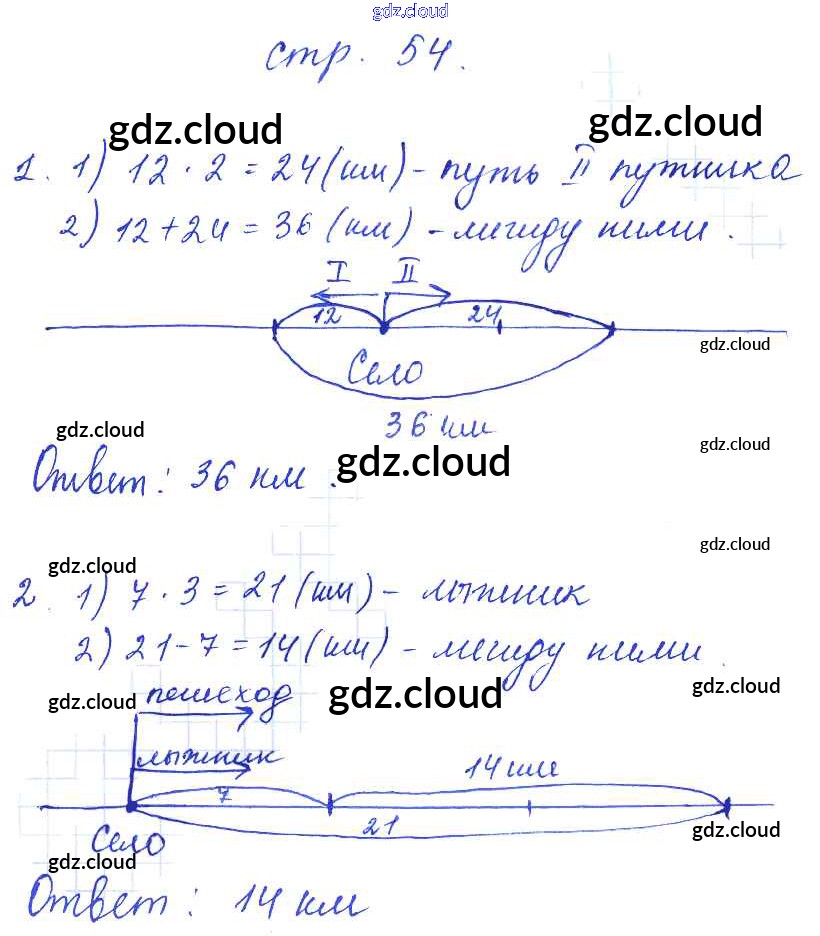 gdz.cloud
стр. 54.
gdz.cloud
gdz.cloud
1. 1) 12 · 2 = 24 (км) - путь II путника
2) 12 + 24 = 36 (км) - между ними.
I II
12 24
gdz.cloud
Село
36 км
gdz.cloud
gdz.cloud
Ответ: 36 км.
gdz.cloud
gdz.cloud
gdz.cloud
2. 1) 7 · 3 = 21 (км) - лыжник
2) 21 - 7 = 14 (км) - между ними.
gdz.cloud
gdz.cloud
gdz.cloud
пешеход
лыжник
14 км
7
21
gdz.cloud
Село
gdz.cloud
Ответ: 14 км